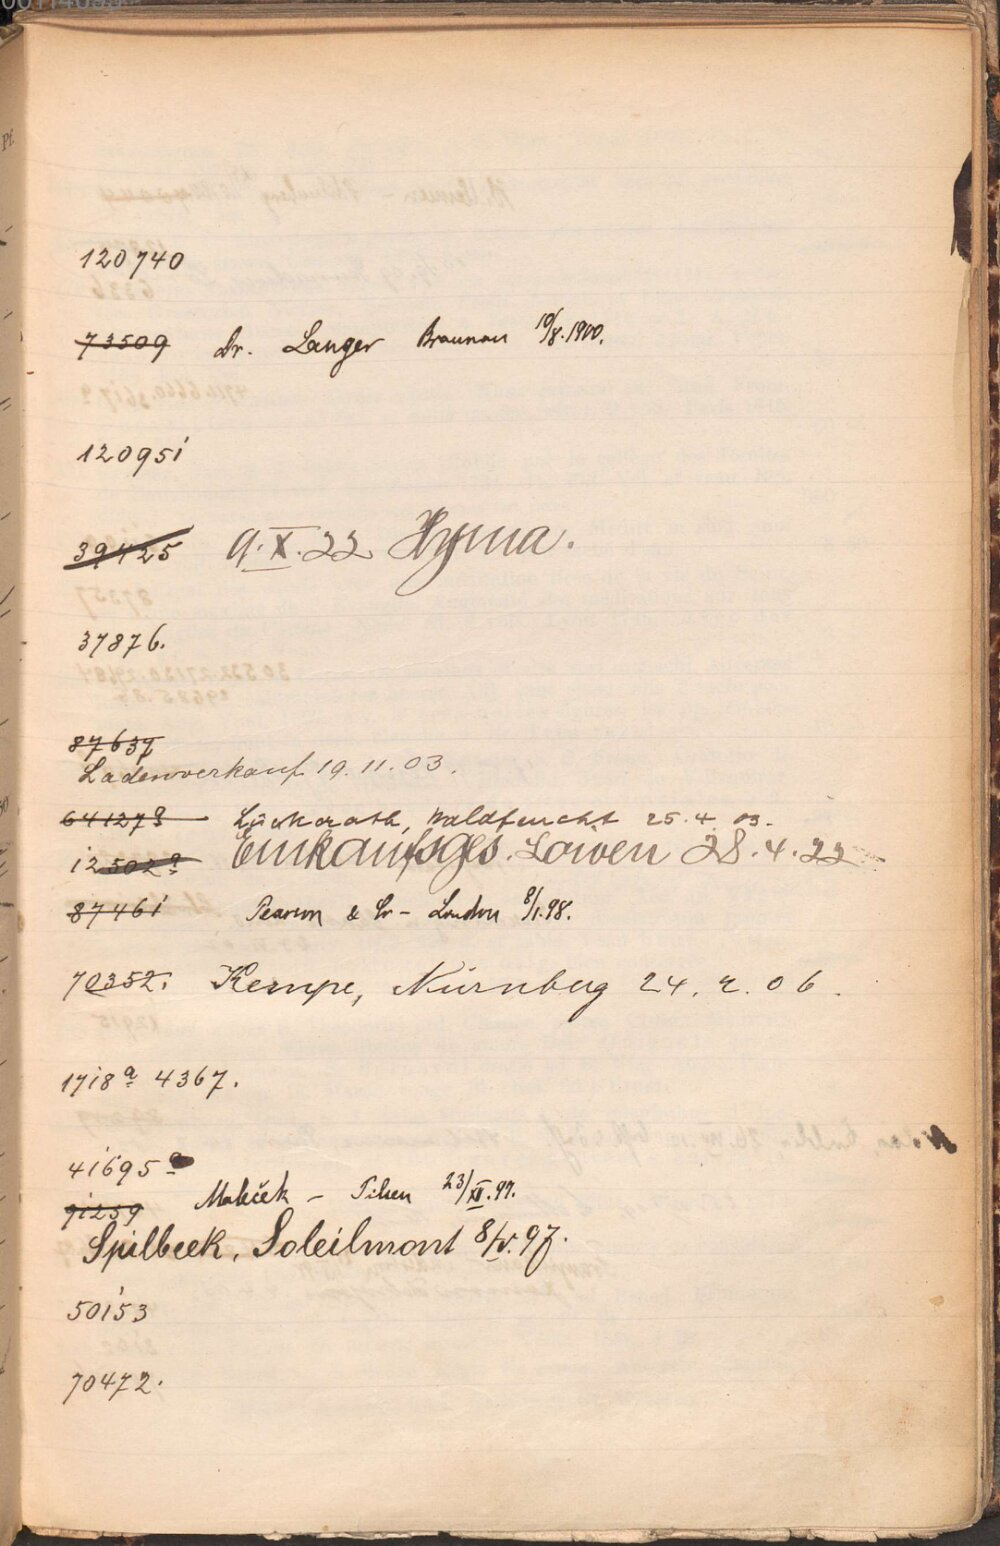 120740
73509 Dr. Langer Braunau 10/8.1900.
120951
39425 9.X.22 Hyma.
37876.
87637
Ladenverkauf 19.11.03.
64127a Lückerath, Waldfeucht 25.4.03.
12502a Einkaufsges. Löwen 28.4.22
87461 Pearson & Co – London 8/1.98.
70352. Kempe, Nürnberg 24.2.06.
1718a 4367.
41695a
71259 – Pilsen 23/XII.97.
Spilbeek, Soleilmont 8/V.97.
50153
70472.